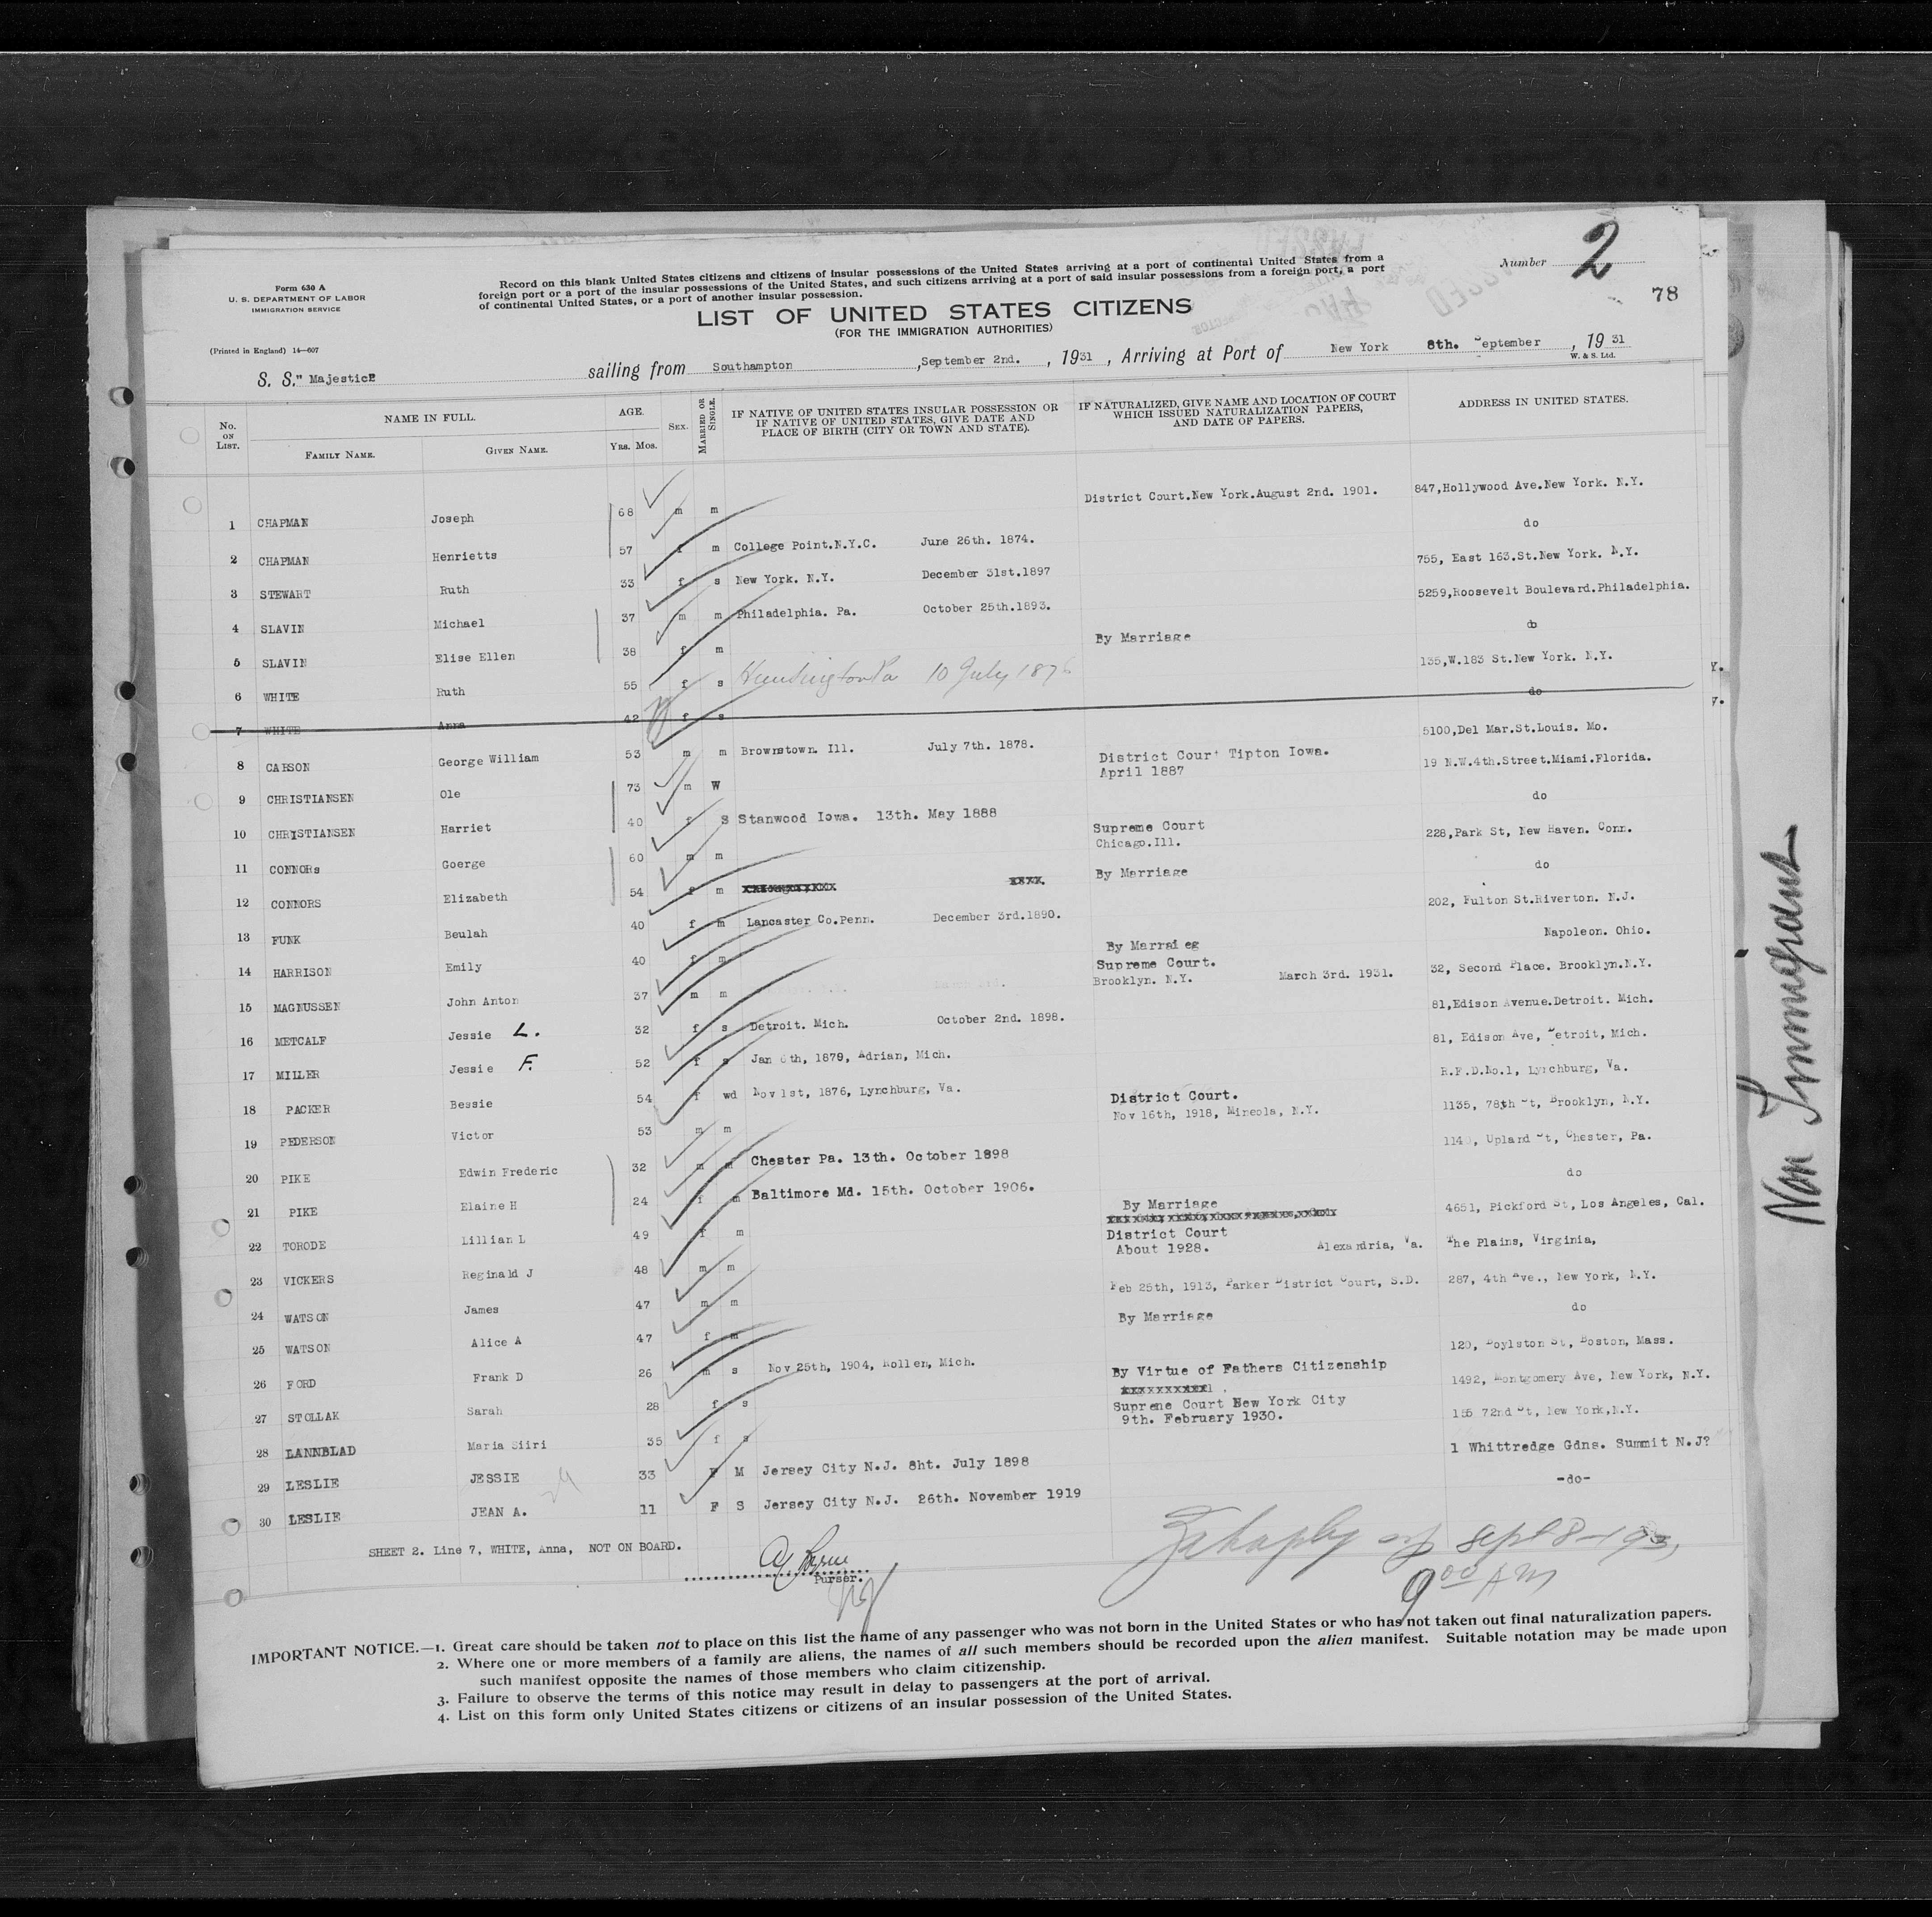 Form 630 A
U. S. DEPARTMENT OF LABOR
IMMIGRATION SERVICE
(Printed in England) 14—607
Record on this blank United States citizens and citizens of insular possessions of the United States arriving at a port of continental United States from a
foreign port or a port of the insular possessions of the United States, and such citizens arriving at a port of said insular possessions from a foreign port, a port
of continental United States, or a port of another insular possession.
Number 2
78
LIST OF UNITED STATES CITIZENS
(FOR THE IMMIGRATION AUTHORITIES)
S. S." Majestic" sailing from Southampton, September 2nd., 1931, Arriving at Port of New York 8th. September, 1931
W. & S. Ltd.
No. ON LIST. NAME IN FULL. FAMILY NAME. GIVEN NAME. AGE. YRS. MOS. SEX. MARRIED OR SINGLE. IF NATIVE OF UNITED STATES INSULAR POSSESSION OR IF NATIVE OF UNITED STATES, GIVE DATE AND PLACE OF BIRTH (CITY OR TOWN AND STATE). IF NATURALIZED, GIVE NAME AND LOCATION OF COURT WHICH ISSUED NATURALIZATION PAPERS, AND DATE OF PAPERS. ADDRESS IN UNITED STATES.
1 CHAPMAN Joseph 68 m m District Court.New York.August 2nd. 1901. 847,Hollywood Ave.New York. N.Y.
2 CHAPMAN Henrietts 57 f m College Point.N.Y.C. June 26th. 1874. do
3 STEWART Ruth 33 f s New York. N.Y. December 31st.1897 755, East 163.St.New York. N.Y.
4 SLAVIN Michael 37 m m Philadelphia. Pa. October 25th.1893. 5259,Roosevelt Boulevard.Philadelphia.
5 SLAVIN Elise Ellen 38 f m By Marriage do
6 WHITE Ruth 55 f s Huntington Pa 10 July 187 135,W.183 St.New York. N.Y.
7 WHITE Anna 42 f s do
8 CARSON George William 53 m m Brownstown. Ill. July 7th. 1878. 5100,Del Mar.St.Louis. Mo.
9 CHRISTIANSEN Ole 73 m W District Court Tipton Iowa. April 1887 19 N.W.4th.Street.Miami.Florida.
10 CHRISTIANSEN Harriet 40 f S Stanwood Iowa. 13th. May 1888 do
11 CONNORs Goerge 60 m m Supreme Court Chicago.Ill. 228,Park St, New Haven. Conn.
12 CONNORS Elizabeth 54 f m By Marriage do
13 FUNK Beulah 40 f m Lancaster Co.Penn. December 3rd.1890. 202, Fulton St.Riverton. N.J.
14 HARRISON Emily 40 f m By Marrai eg Napoleon. Ohio.
15 MAGNUSSEN John Anton 37 m m Supreme Court. Brooklyn. N.Y. March 3rd. 1931. 32, Second Place. Brooklyn.N.Y.
16 METCALF Jessie L. 32 f s Detroit. Mich. October 2nd. 1898. 81,Edison Avenue.Detroit. Mich.
17 MILLER Jessie F. 52 f s Jan 6th, 1879, Adrian, Mich. 81, Edison Ave, Detroit, Mich.
18 PACKER Bessie 54 f wd Nov 1st, 1876, Lynchburg, Va. R.F.D.No.1, Lynchburg, Va.
19 PEDERSON Victor 53 m m District Court. Nov 16th, 1918, Mineola, N.Y. 1135, 78th St, Brooklyn, N.Y.
20 PIKE Edwin Frederic 32 m m Chester Pa. 13th. October 1898 Upland St, Chester, Pa.
21 PIKE Elaine H 24 f m Baltimore Md. 15th. October 1906. do
22 TORODE Lillian L 49 f m By Marriage 4651, Pickford St, Los Angeles, Cal.
23 VICKERS Reginald J 48 m m District Court About 1928. Alexandria, Va. The Plains, Virginia,
24 WATSON James 47 m m Feb 25th, 1913, Parker District Court, S.D. 287, 4th Ave., New York, N.Y.
25 WATSON Alice A 47 f m By Marriage do
26 FORD Frank D 26 m s Nov 25th, 1904, Mich. 120, Boylston St, Boston, Mass.
27 STOLLAK Sarah 28 f s By Virtue of Fathers Citizenship 1492, Montgomery Ave, New York, N.Y.
28 LANNBLAD Maria Siiri 35 f s Supreme Court New York City 9th. February 1930. 155 72nd St, New York,N.Y.
29 LESLIE JESSIE 33 F M Jersey City N.J. 8ht. July 1898 1 Whittredge Gdns. Summit N.J?
30 LESLIE JEAN A. 11 F S Jersey City N.J. 26th. November 1919 -do-
SHEET 2. Line 7, WHITE, Anna, NOT ON BOARD.
Purser.
Sept 8-1931
9 00 AM
Non Immigrant
IMPORTANT NOTICE.—1. Great care should be taken not to place on this list the name of any passenger who was not born in the United States or who has not taken out final naturalization papers.
2. Where one or more members of a family are aliens, the names of all such members should be recorded upon the alien manifest. Suitable notation may be made upon
such manifest opposite the names of those members who claim citizenship.
3. Failure to observe the terms of this notice may result in delay to passengers at the port of arrival.
4. List on this form only United States citizens or citizens of an insular possession of the United States.